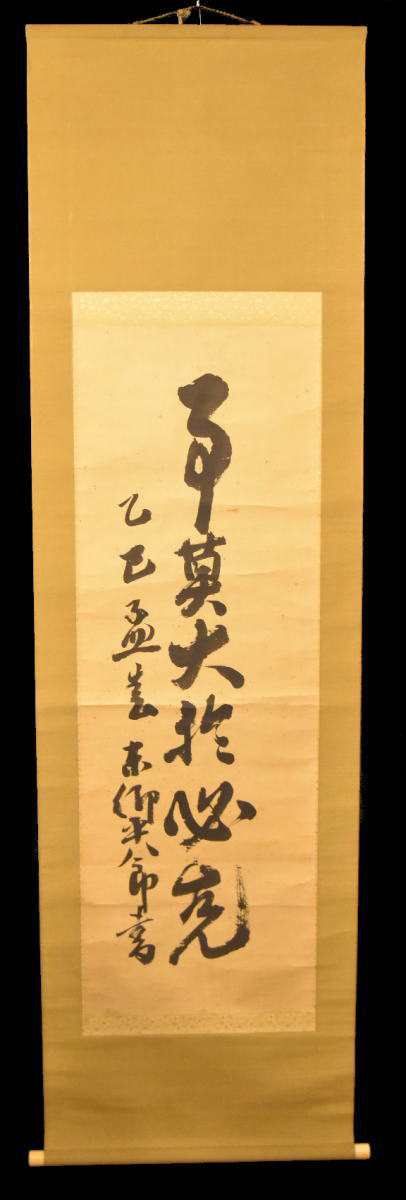 事莫大於必克
乙巳孟春東郷平八郎書